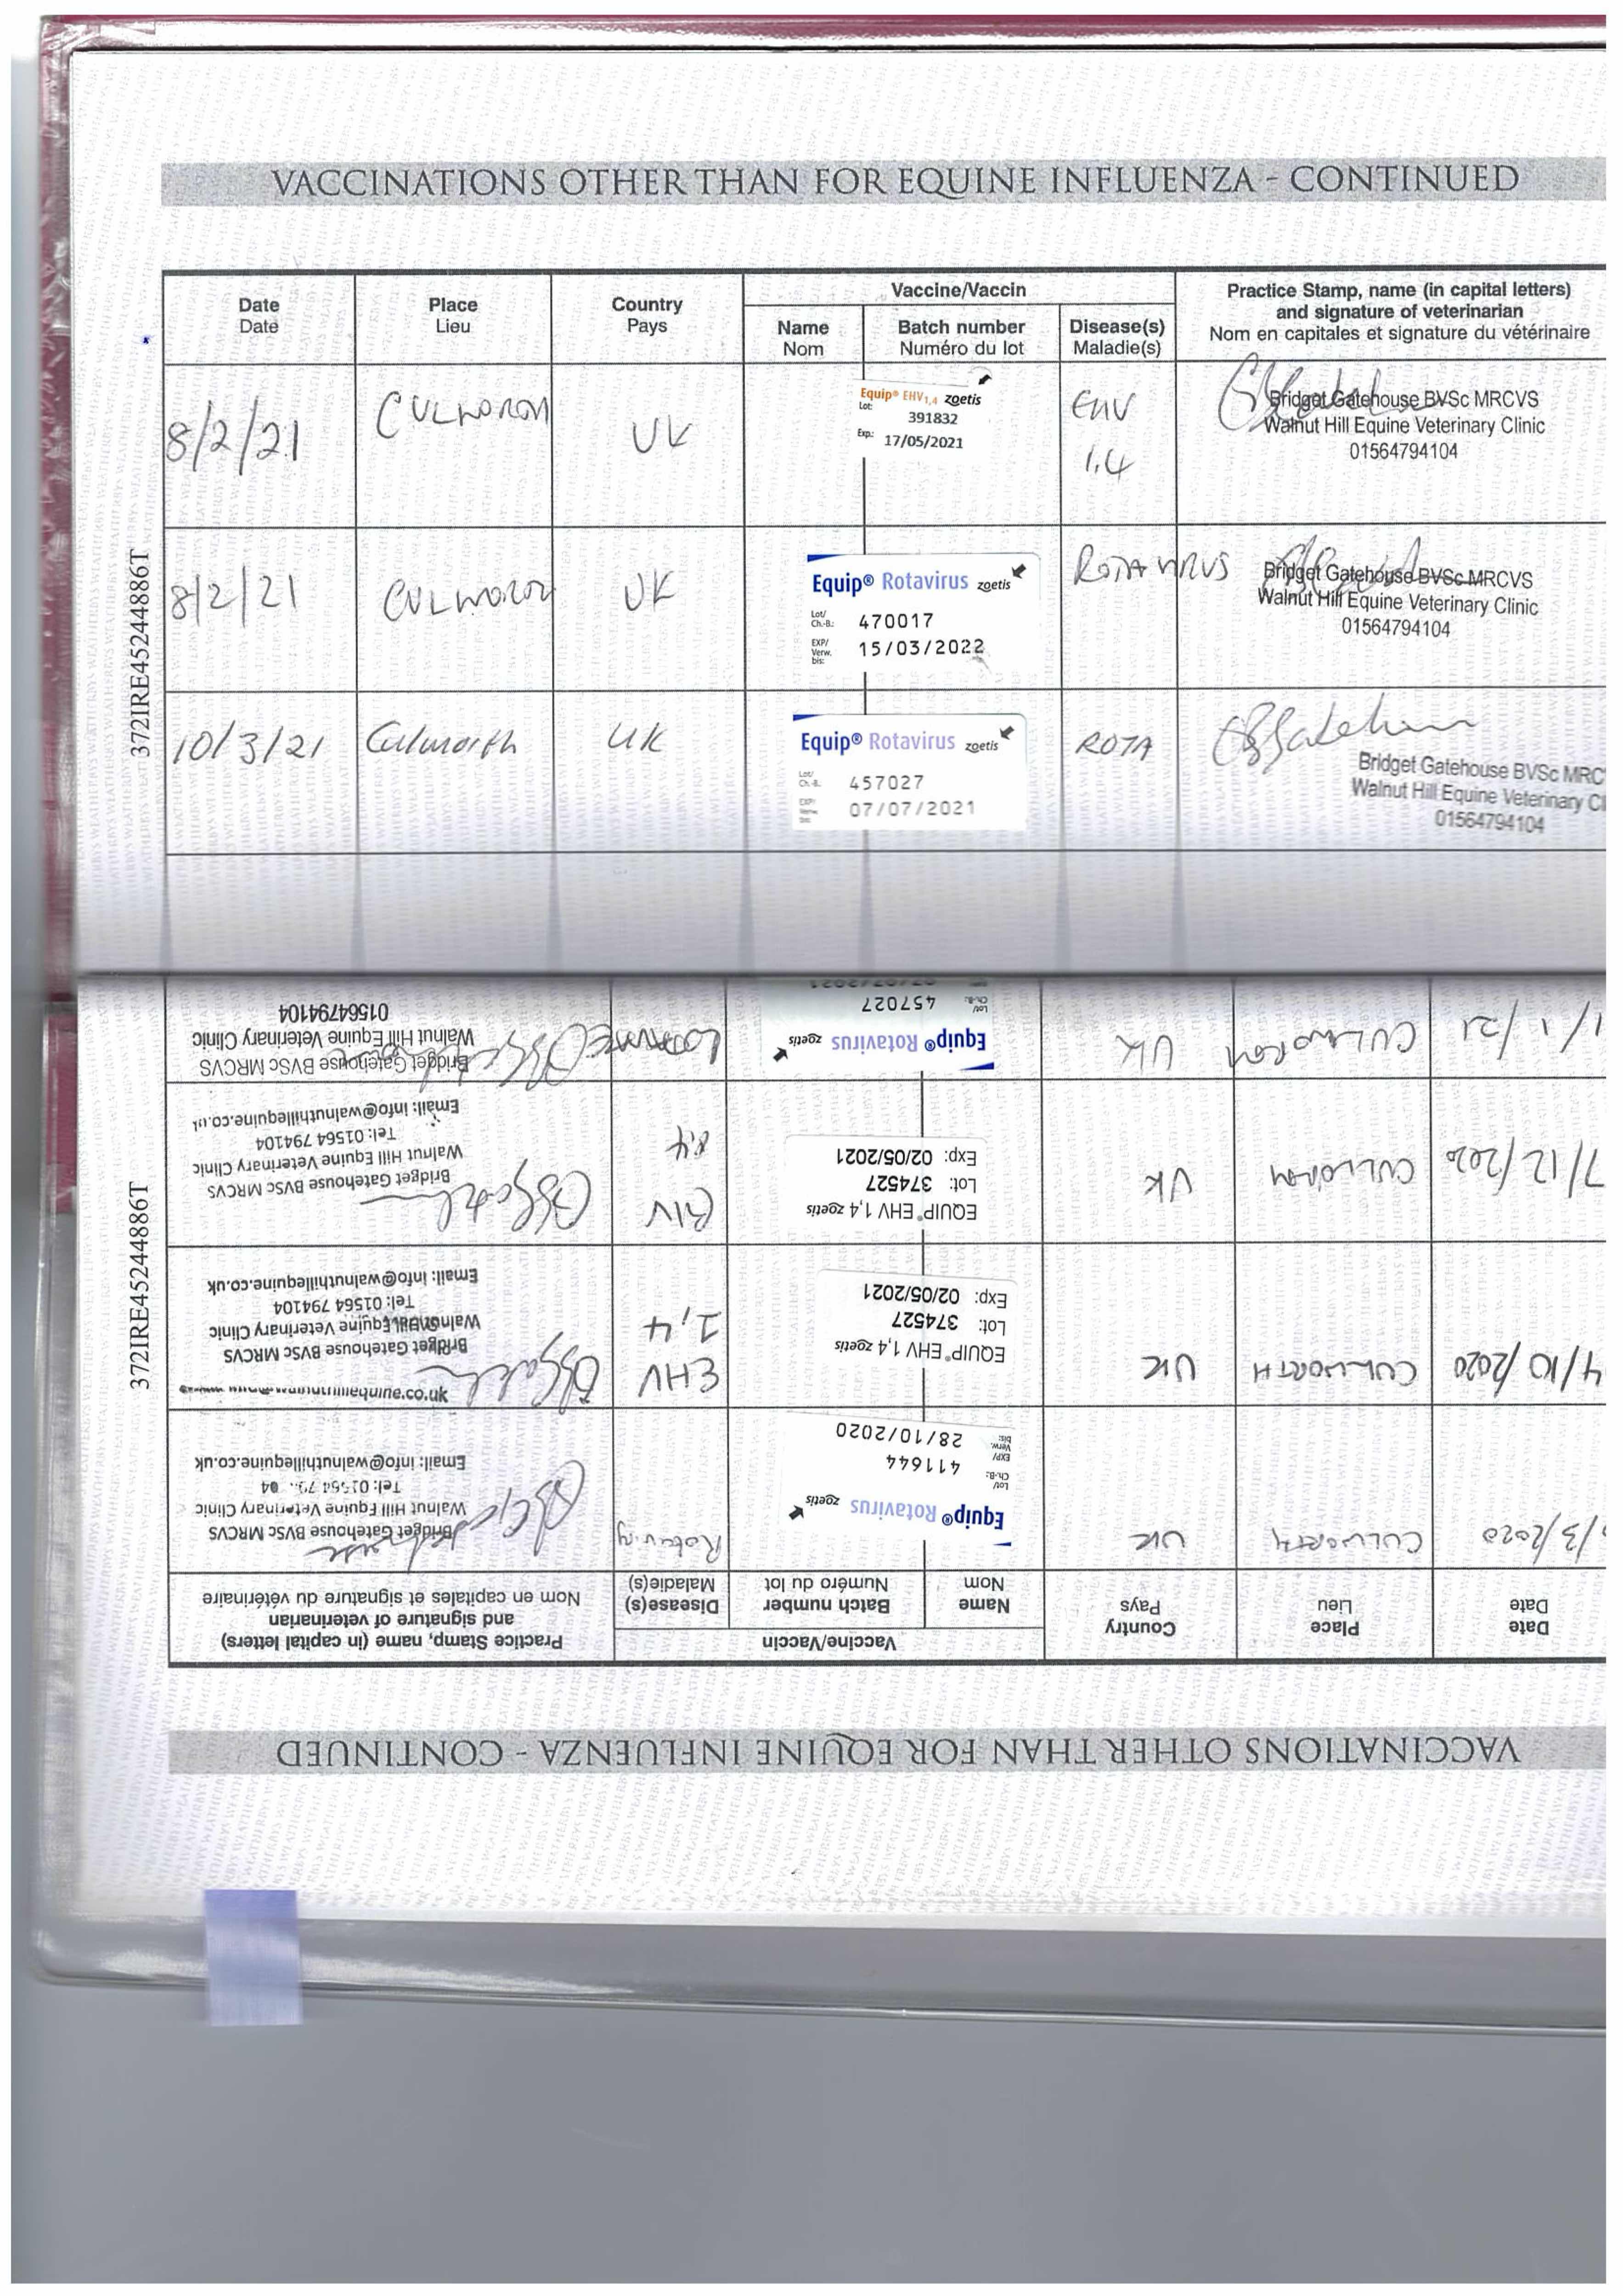 VACCINATIONS OTHER THAN FOR EQUINE INFLUENZA - CONTINUED
Date
Date
Place
Lieu
Country
Pays
Vaccine/Vaccin
Name
Nom
Batch number
Numéro du lot
Disease(s)
Maladie(s)
Practice Stamp, name (in capital letters)
and signature of veterinarian
Nom en capitales et signature du vétérinaire
8/2/21
UK
Equip® EHV1,4 zoetis
Lot:
391832
Exp.: 17/05/2021
EHV
1.4
Bridget Gatehouse BVSc MRCVS
Walnut Hill Equine Veterinary Clinic
01564794104
8/2/21
UK
Equip® Rotavirus zoetis
Lot/
Ch.-B.: 470017
EXP/
Verw.
bis: 15/03/2022
ROTAVIRUS
Bridget Gatehouse BVSc MRCVS
Walnut Hill Equine Veterinary Clinic
01564794104
10/3/21
Culworth
UK
Equip® Rotavirus zoetis
Lot/
Ch.-B. 457027
EXP/
Verw.
bis: 07/07/2021
ROTA
Bridget Gatehouse BVSc MRC
Walnut Hill Equine Veterinary Cl
01564794104
372IRE45244886T
VACCINATIONS OTHER THAN FOR EQUINE INFLUENZA - CONTINUED
Date
Date
Place
Lieu
Country
Pays
Vaccine/Vaccin
Name
Nom
Batch number
Numéro du lot
Disease(s)
Maladie(s)
Practice Stamp, name (in capital letters)
and signature of veterinarian
Nom en capitales et signature du vétérinaire
/3/2020
CULWORTH
UK
Equip® Rotavirus zoetis
Lot/
Ch.-B.: 411644
EXP/
Verw.
bis: 28/10/2020
Bridget Gatehouse BVSc MRCVS
Walnut Hill Equine Veterinary Clinic
Email: info@walnuthillequine.co.uk
4/10/2020
CULWORTH
UK
EQUIP® EHV 1,4 zoetis
Lot: 374527
Exp: 02/05/2021
EHV
1,4
Bridget Gatehouse BVSc MRCVS
Walnut Hill Equine Veterinary Clinic
Tel: 01564 794104
Email: info@walnuthillequine.co.uk
7/12/2020
UK
EQUIP® EHV 1,4 zoetis
Lot: 374527
Exp: 02/05/2021
Bridget Gatehouse BVSc MRCVS
Walnut Hill Equine Veterinary Clinic
Tel: 01564 794104
Email: info@walnuthillequine.co.uk
1/1/21
UK
Equip® Rotavirus zoetis
Lot/
Ch.-B.: 457027
Bridget Gatehouse BVSc MRCVS
Walnut Hill Equine Veterinary Clinic
01564794104
372IRE45244886T